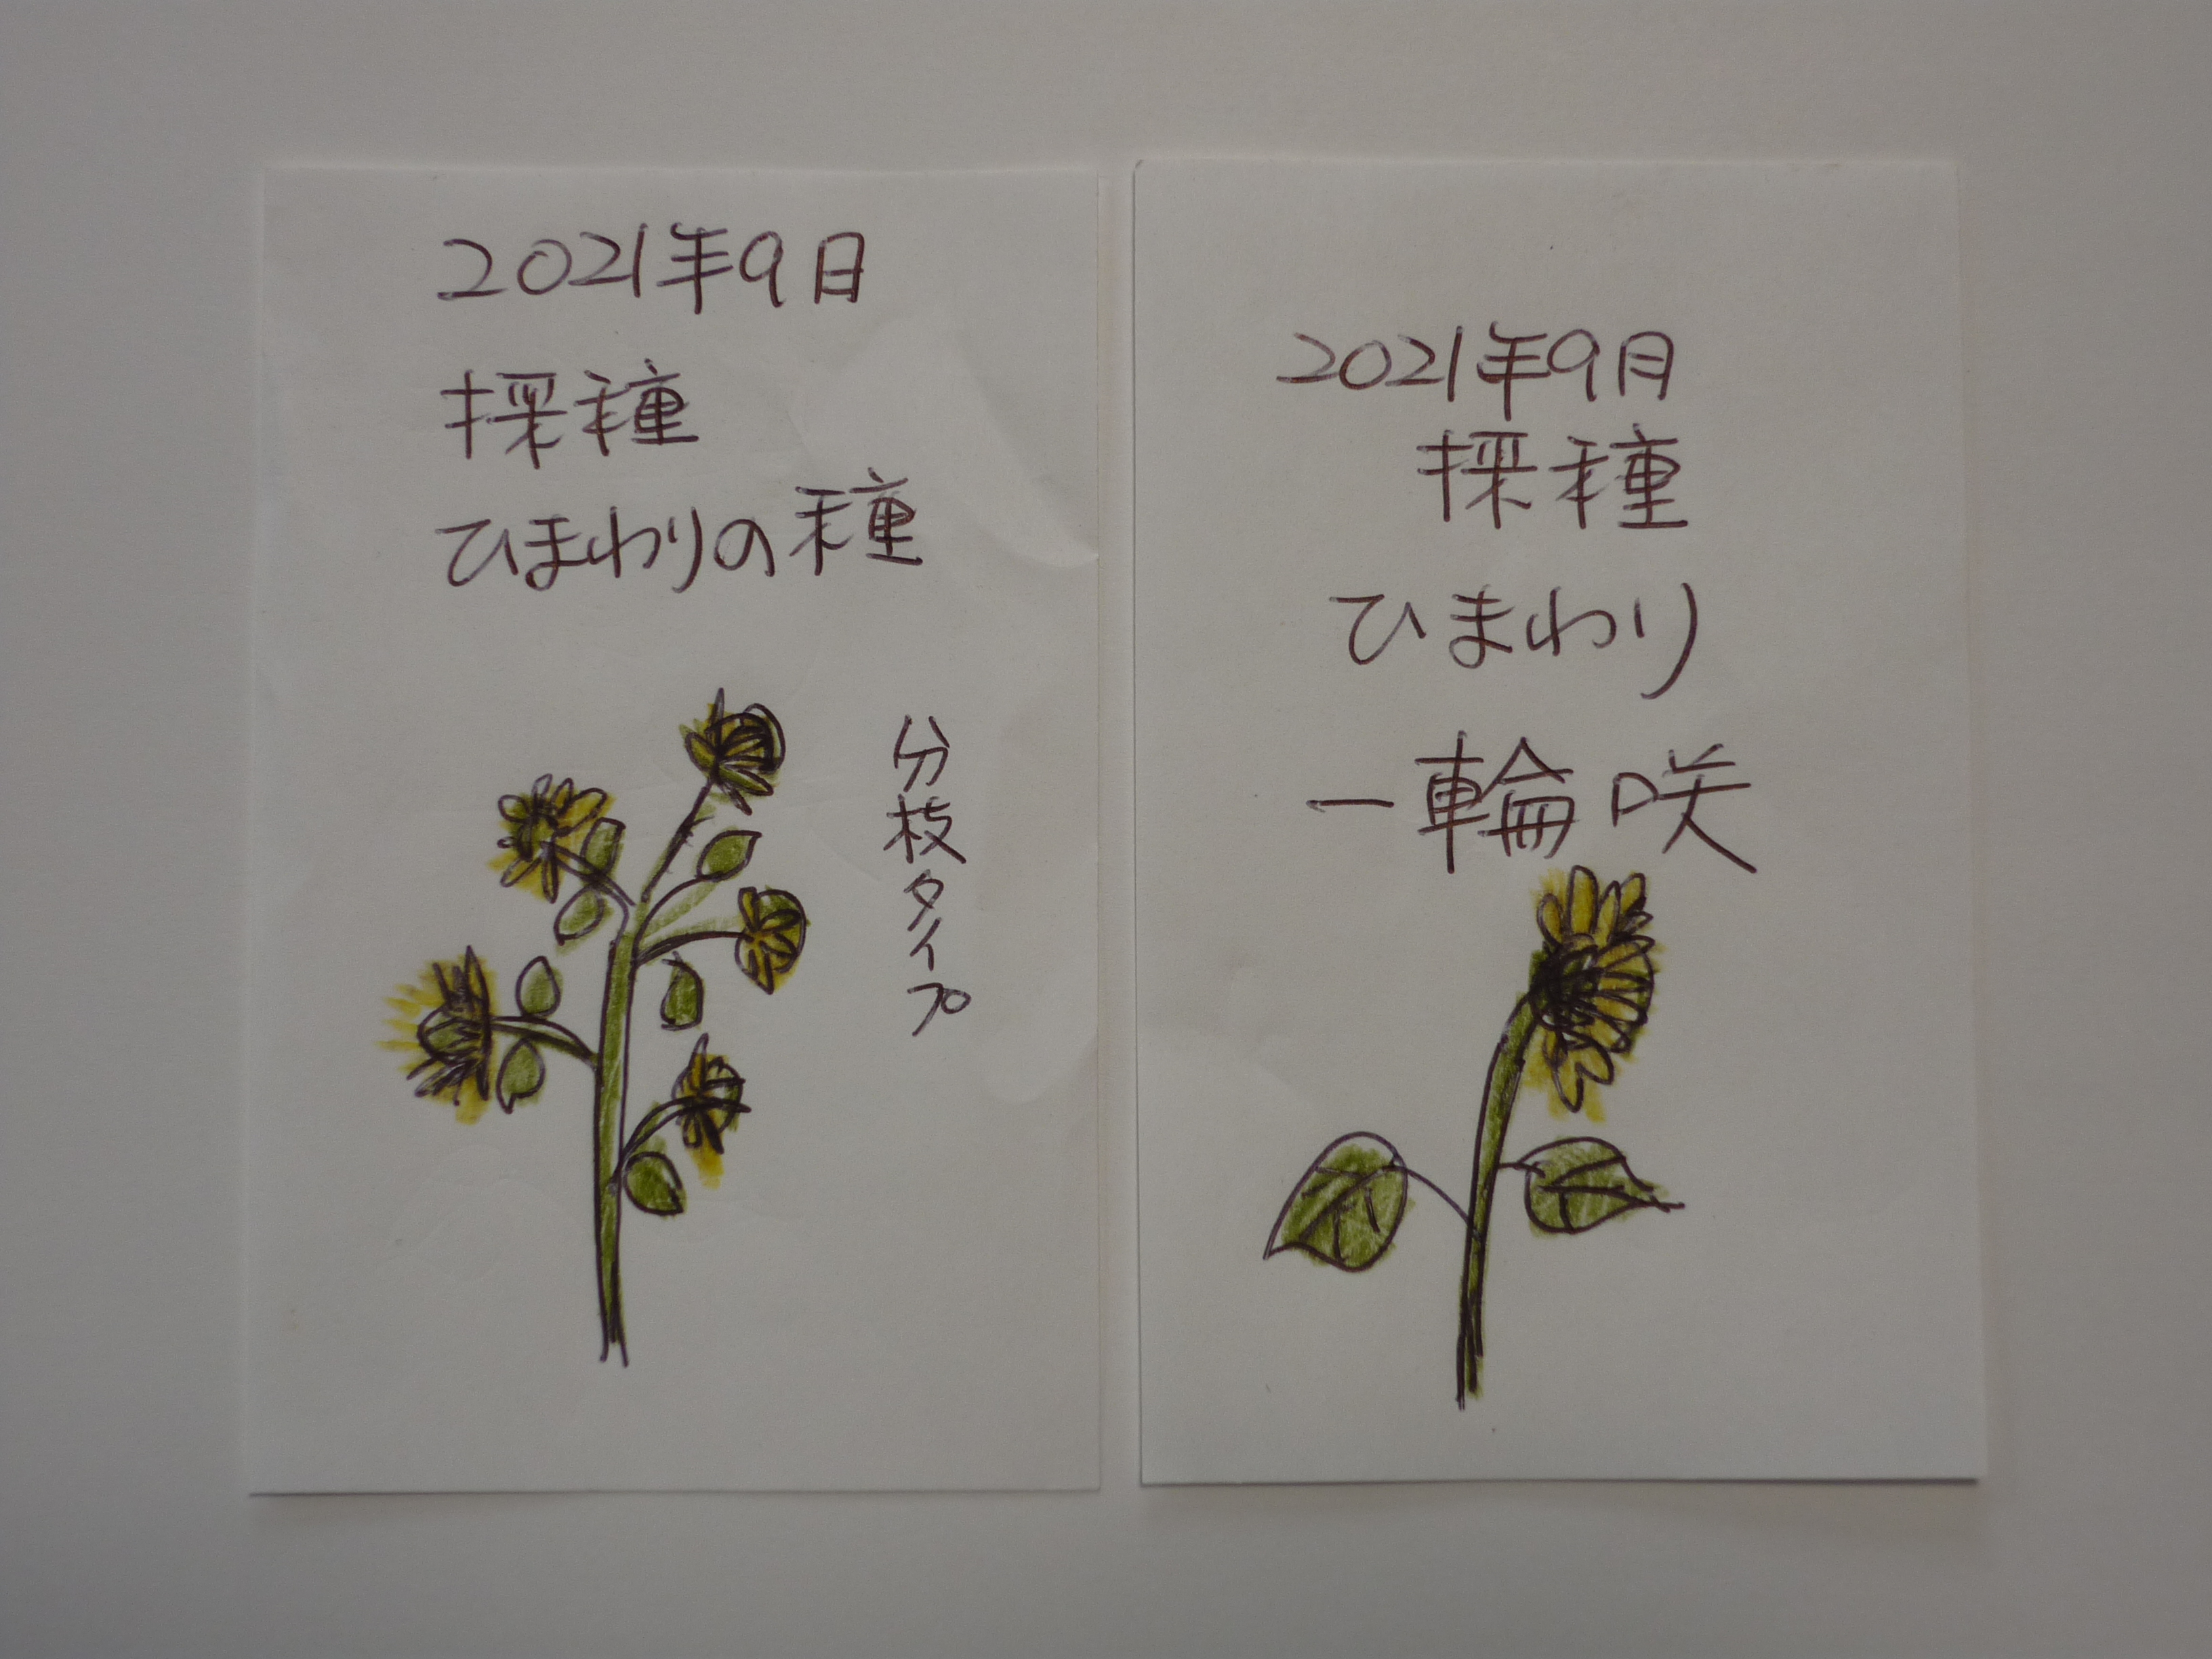 2021年9日
採種
ひまわりの種
分枝タイプ
2021年9月
採種
ひまわり
一輪咲